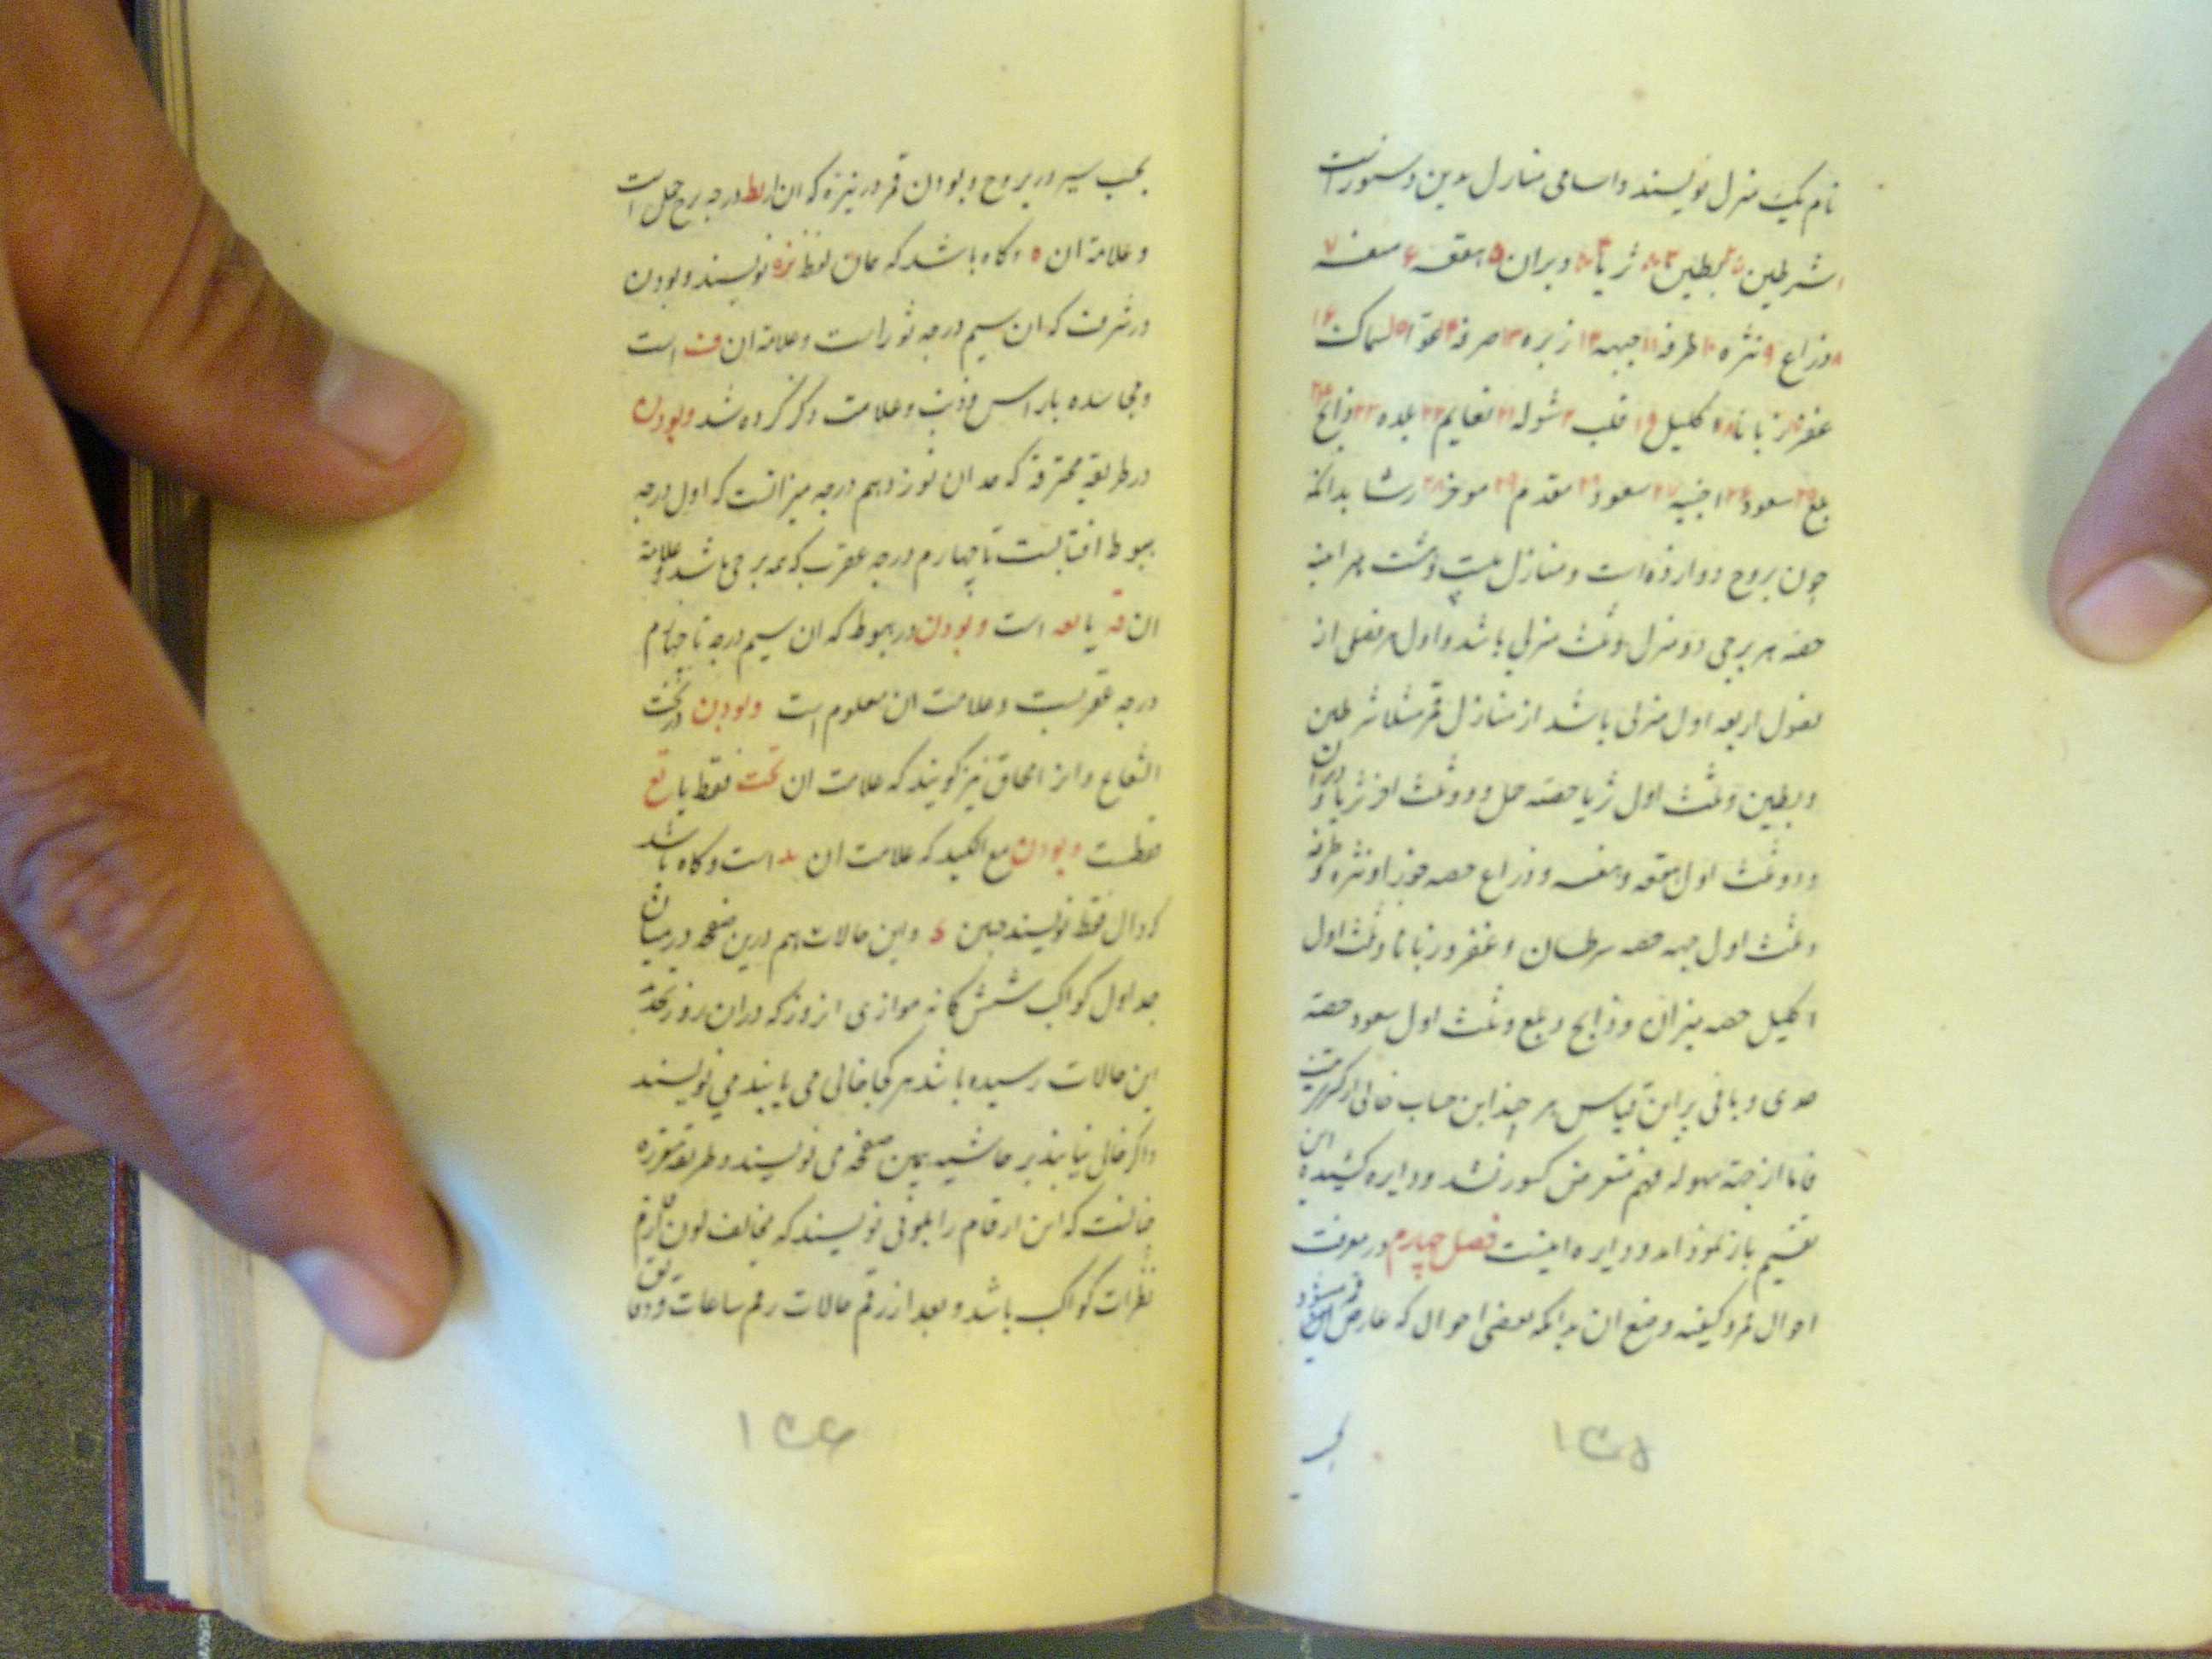 نام یک منزل نویسند و اسامی منازل بدین دستورست
۱ شرطین ۲ بطین ۳ ثریا ۴ دبران ۵ هقعه ۶ هنعه ۷
۸ ذراع ۹ نثره ۱۰ طرفه ۱۱ جبهه ۱۲ زبره ۱۳ صرفه ۱۴ عوا ۱۵ سماک ۱۶
غفر زبانا ۱۸ اکلیل ۱۹ قلب ۲۰ شوله ۲۱ نعایم ۲۲ بلده ۲۳ ذابح ۲۴
بلع ۲۵ سعود ۲۶ اخبیه ۲۷ سعود مقدم موخر ۲۸ رشا بدانکه
چون بروج دوازده است و منازل بیست و هشت هر اینه
حصه هر برجی دو منزل و ثلث منزلی باشد و اول هر فصلی از
فصول اربعه اول منزلی باشد از منازل قمر مثلا شرطین
و بطین و ثلث اول ثریا حصه حمل و دو ثلث اخر ثریا و دبران
و دو ثلث اول هقعه و هنعه و ذراع حصه جوزا و نثره و طرفه
و ثلث اول جبهه حصه سرطان و غفر و زبانا و ثلث اول
اکلیل حصه میزان و ذابح و بلع و ثلث اول سعود حصه
جدی و باقی براین قیاس هر چند این حساب خالی از کسر نیست
فاما از جهة سهولة فهم متعرض کسور نشد و دایره کشیده این
تقسیم باز نموده اند و دایره اینست فصل چهارم در معرفت
احوال قمر و کیفیة وضع ان بدانکه بعضی احوال که عارض قمر میشود
بحسب سیر در بروج و بودن قمر در نیزه که ان از یط درجه برج حمل است
و علامة ان ه و کاه باشد که همان لفظ نیزه نویسند و بودن
در شرف که ان سیم درجه ثور است و علامة ان ف است
و مجاسده با راس و ذنب و علامت ذکر کرده شد و بودن
در طریقه محترقه که حد ان نوزدهم درجه میزانست که اول درجه
هبوط افتابست تا چهارم درجه عقرب که می باشد و علامة
ان قه یا لعه است و بودن در هبوط که ان سیم درجه تا چهارم
درجه عقربست و علامت ان معلوم است و بودن در تحت
الشعاع و انرا محاق نیز کویند که علامت ان تحت فقط یا تع
فقطست و بودن مع الکید که علامت ان ید است و کاه باشد
که دال فقط نویسند چنین د و این حالات هم درین صفحه در میان
جداول کواکب شش کانه موازی ان روز که دران روز
این حالات رسیده باشد هر کجا خالی می یابند می نویسند
و اکر خالی نیابند بر حاشیه یمین صفحه می نویسند و طریقه مقرره
چنانست که این ارقام را بلونی نویسند که مخالف لون رقم
نظرات کواکب باشد و بعد از رقم حالات رقم ساعات و دقایق
۱۳۵
۱۳۶